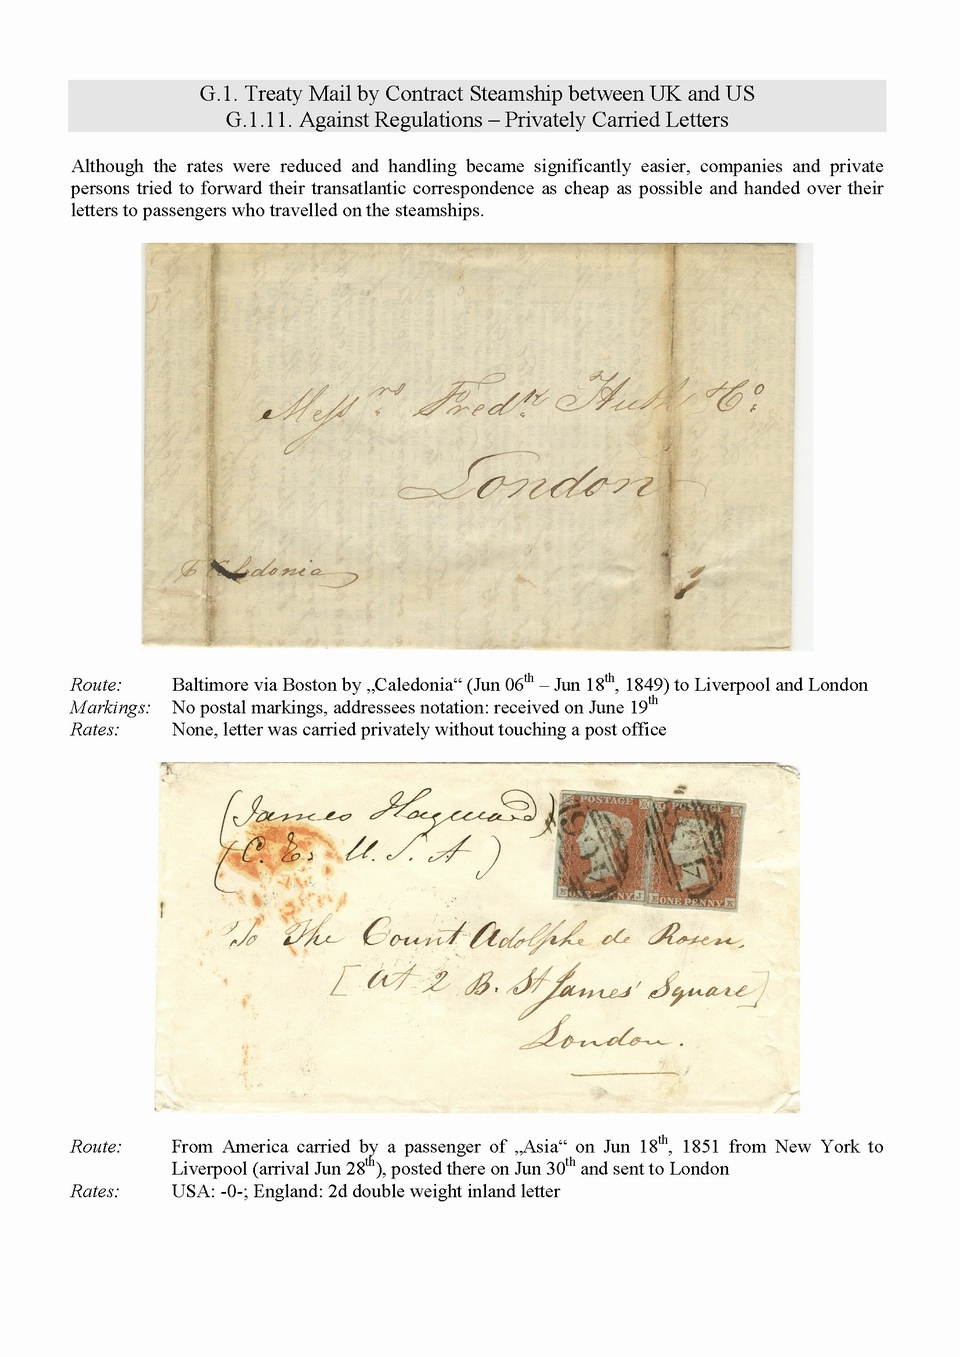 G.1. Treaty Mail by Contract Steamship between UK and US
G.1.11. Against Regulations – Privately Carried Letters
Although the rates were reduced and handling became significantly easier, companies and private
persons tried to forward their transatlantic correspondence as cheap as possible and handed over their
letters to passengers who travelled on the steamships.
Messrs Fredk Huth & Co.
London
Caledonia
Route: Baltimore via Boston by „Caledonia“ (Jun 06th – Jun 18th, 1849) to Liverpool and London
Markings: No postal markings, addressees notation: received on June 19th
Rates: None, letter was carried privately without touching a post office
(James Hayward)
(C. E. U. S. A)
POSTAGE
POSTAGE
E ONE PENNY J
E ONE PENNY K
To The Count Adolphe de Rosen,
[at 2 B. St James' Square]
London.
Route: From America carried by a passenger of „Asia“ on Jun 18th, 1851 from New York to
Liverpool (arrival Jun 28th), posted there on Jun 30th and sent to London
Rates: USA: -0-; England: 2d double weight inland letter